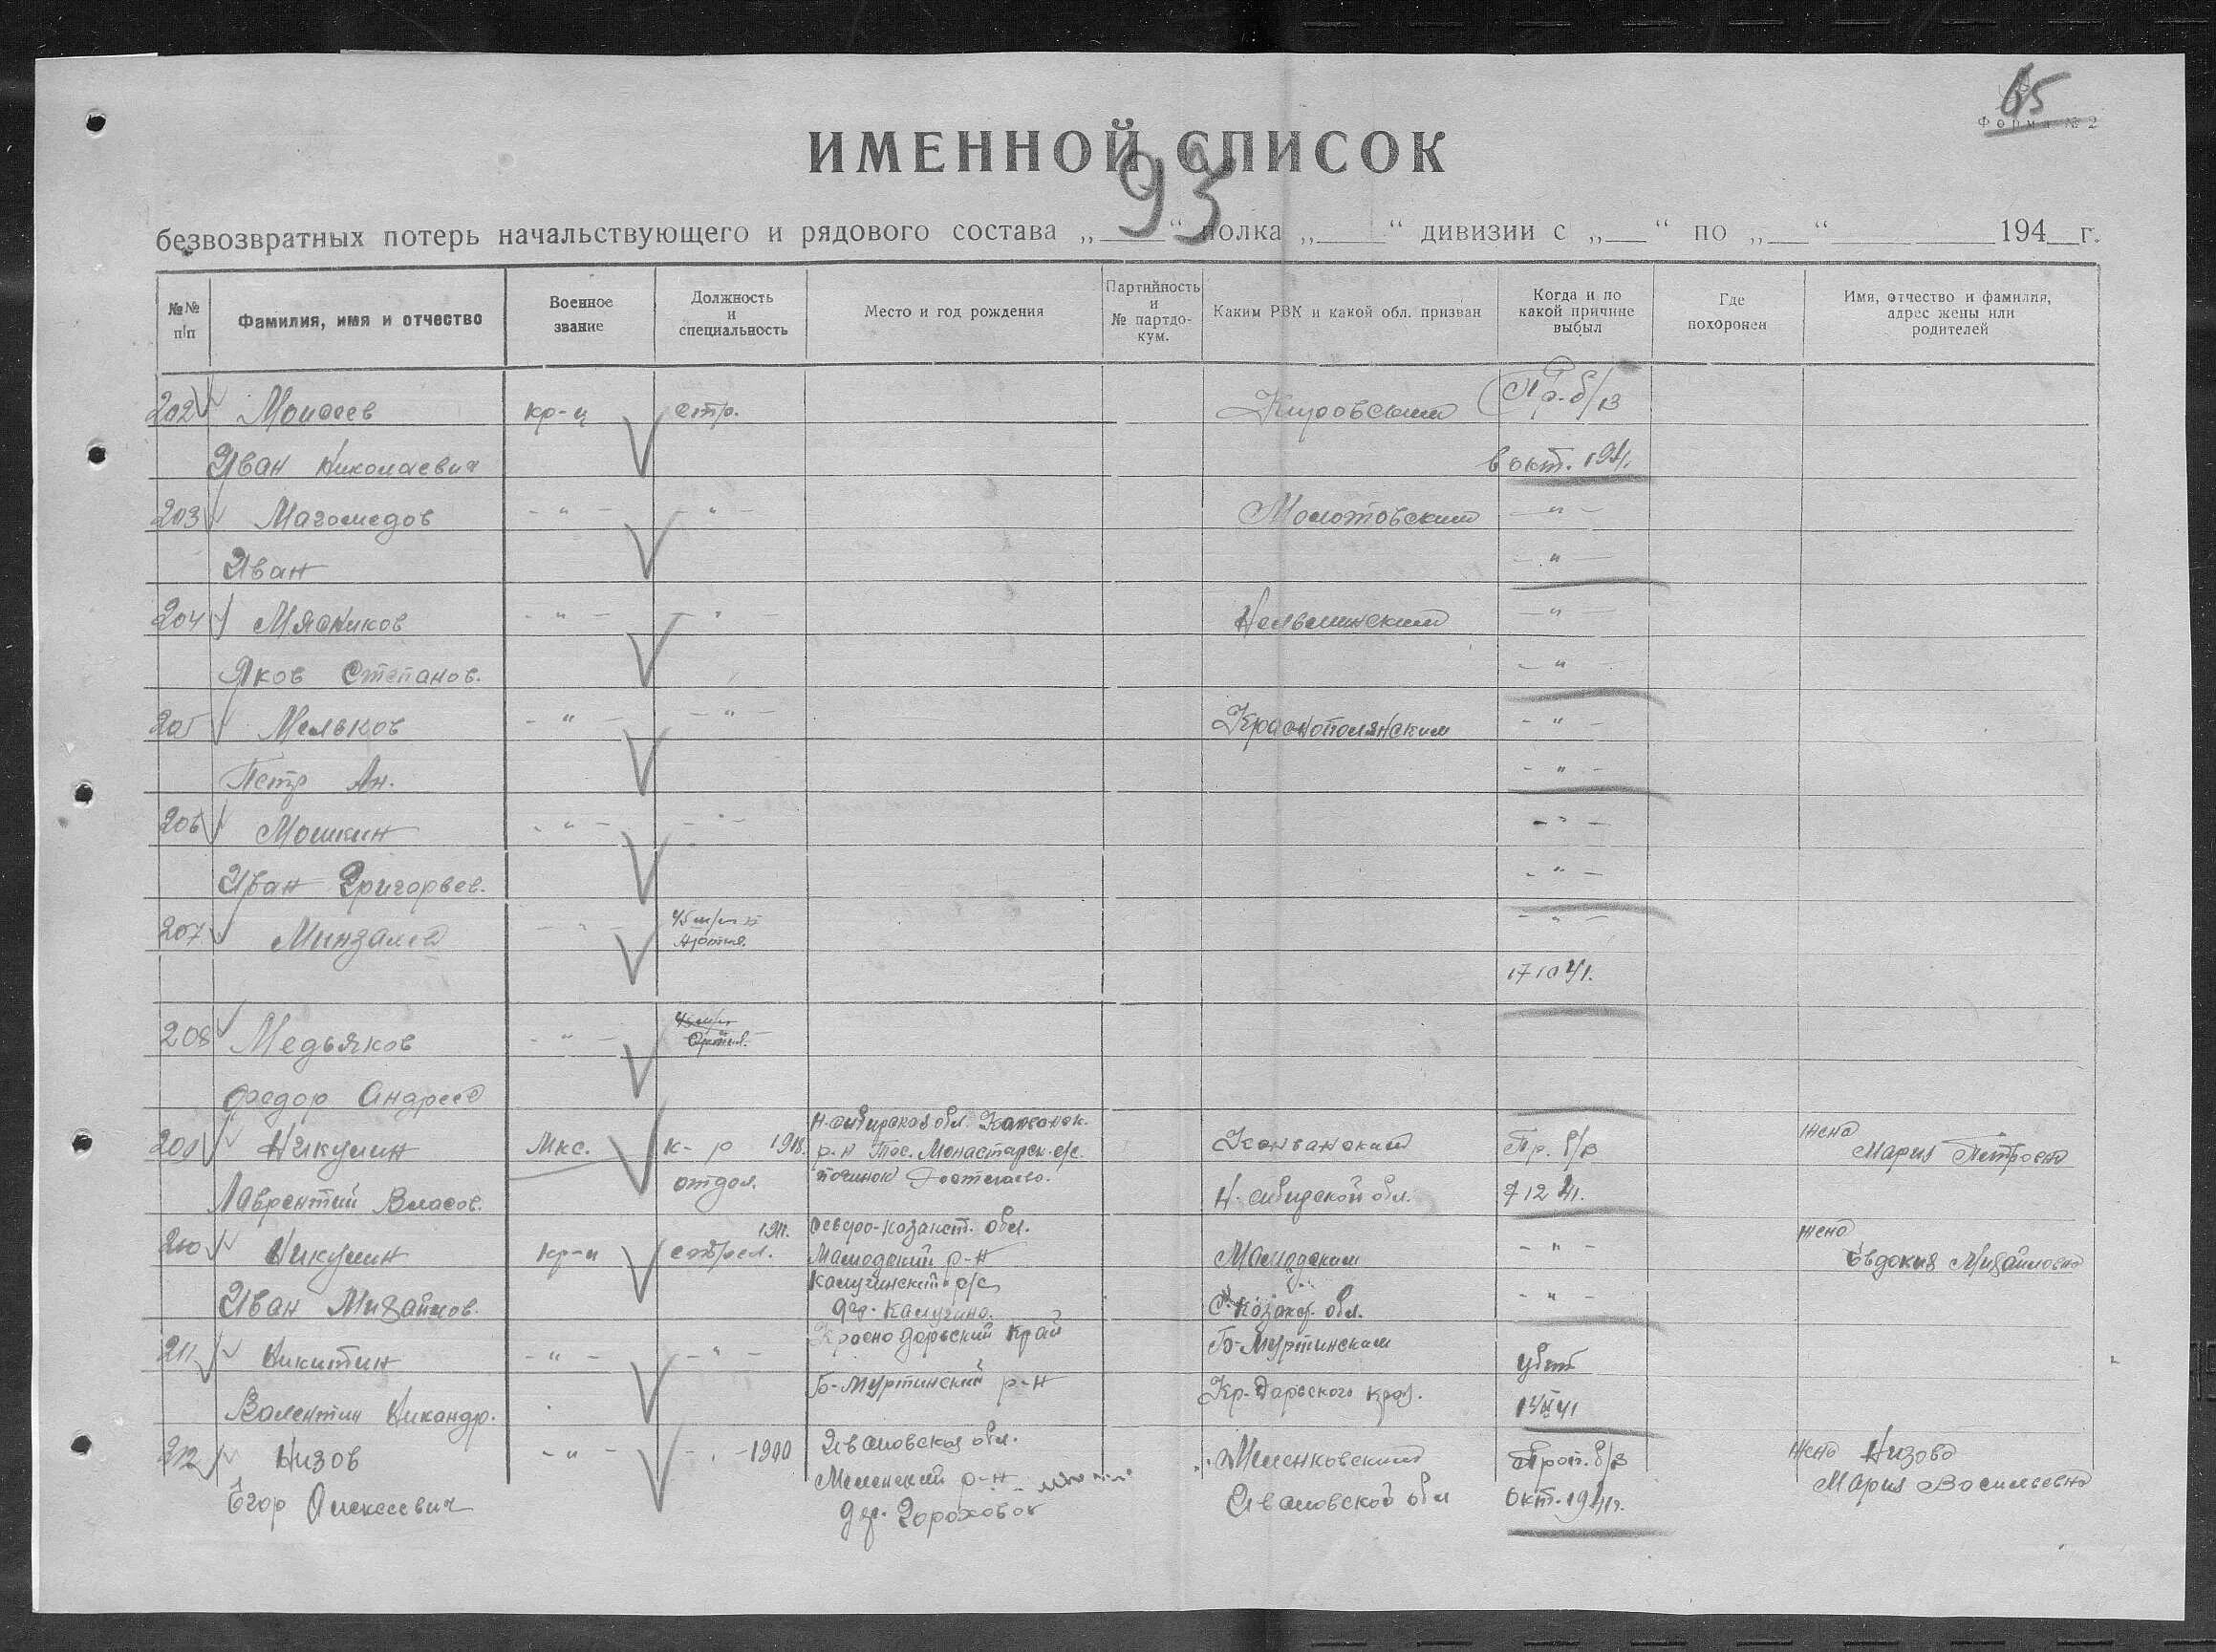 65
Форма № 2
ИМЕННОЙ СПИСОК
93
безвозвратных потерь начальствующего и рядового состава „ “ полка „ “ дивизии с „ “ по „ “ 194 г.
№№ п/п
Фамилия, имя и отчество
Военное звание
Должность и специальность
Место и год рождения
Партийность и № партдо-кум.
Каким РВК и какой обл. призван
Когда и по какой причине выбыл
Где похоронен
Имя, отчество и фамилия, адрес жены или родителей
202 Моисеев кр-ц стр. Кировским Пр. б/в
Иван Николаевич в окт. 1941.
203 Магомедов - " - - " - Молотовским - " -
Иван - " -
204 Мясников - " - - " - - " -
Яков Степанов. - " -
205 Мельков - " - - " - Краснополянским - " -
Петр Ан. - " -
206 Мошкин - " - - " - - " -
Иван Григорьев. - " -
207 - " - 45 м/м - " -
17 10 41.
208 Медьяков - " -
Федор Андреев
Н-сибирская обл.
209 Никулин Мкс. к-р 1918. р-н Пос. Монастырск. с/с. Пр. б/в жена Мария Петровна
Лаврентий Власов. отдел. починок Н-сибирской обл. 7 12 41.
1911. Северо-казахст. обл.
210 Никулин кр-ц стрел. р-н - " - жена Евдокия Михайловна
Иван Михайлов. с/с - " -
дер. Калугино. С. Казахс. обл.
Красноярский край
211 Никитин - " - - " - Б-Муртинским убит
Валентин Никандр. Б-Муртинский р-н Кр-Ярского края.
212 Низов - " - - " - 1900 Ивановская обл. Меленковским Проп. б/в жена Низова
Егор Алексеевич Меленский р-н Ивановской обл окт. 1941г. Мария Васильевна
дер.